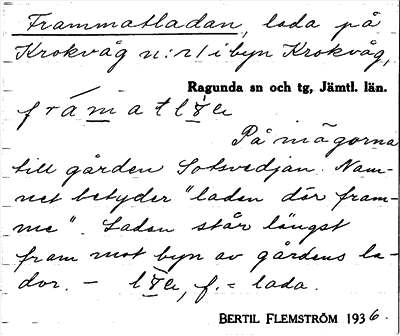 Frammatladan, lada på
Krokvåg n:r 1 i byn Krokvåg,
Ragunda sn och tg, Jämtl. län.
På mågorna
till gården Sotsvedjan. Nam-
net betyder "ladan där fram-
me". Ladan står längst
fram mot byn av gårdens la-
dor. – f. = lada.
BERTIL FLEMSTRÖM 1936.